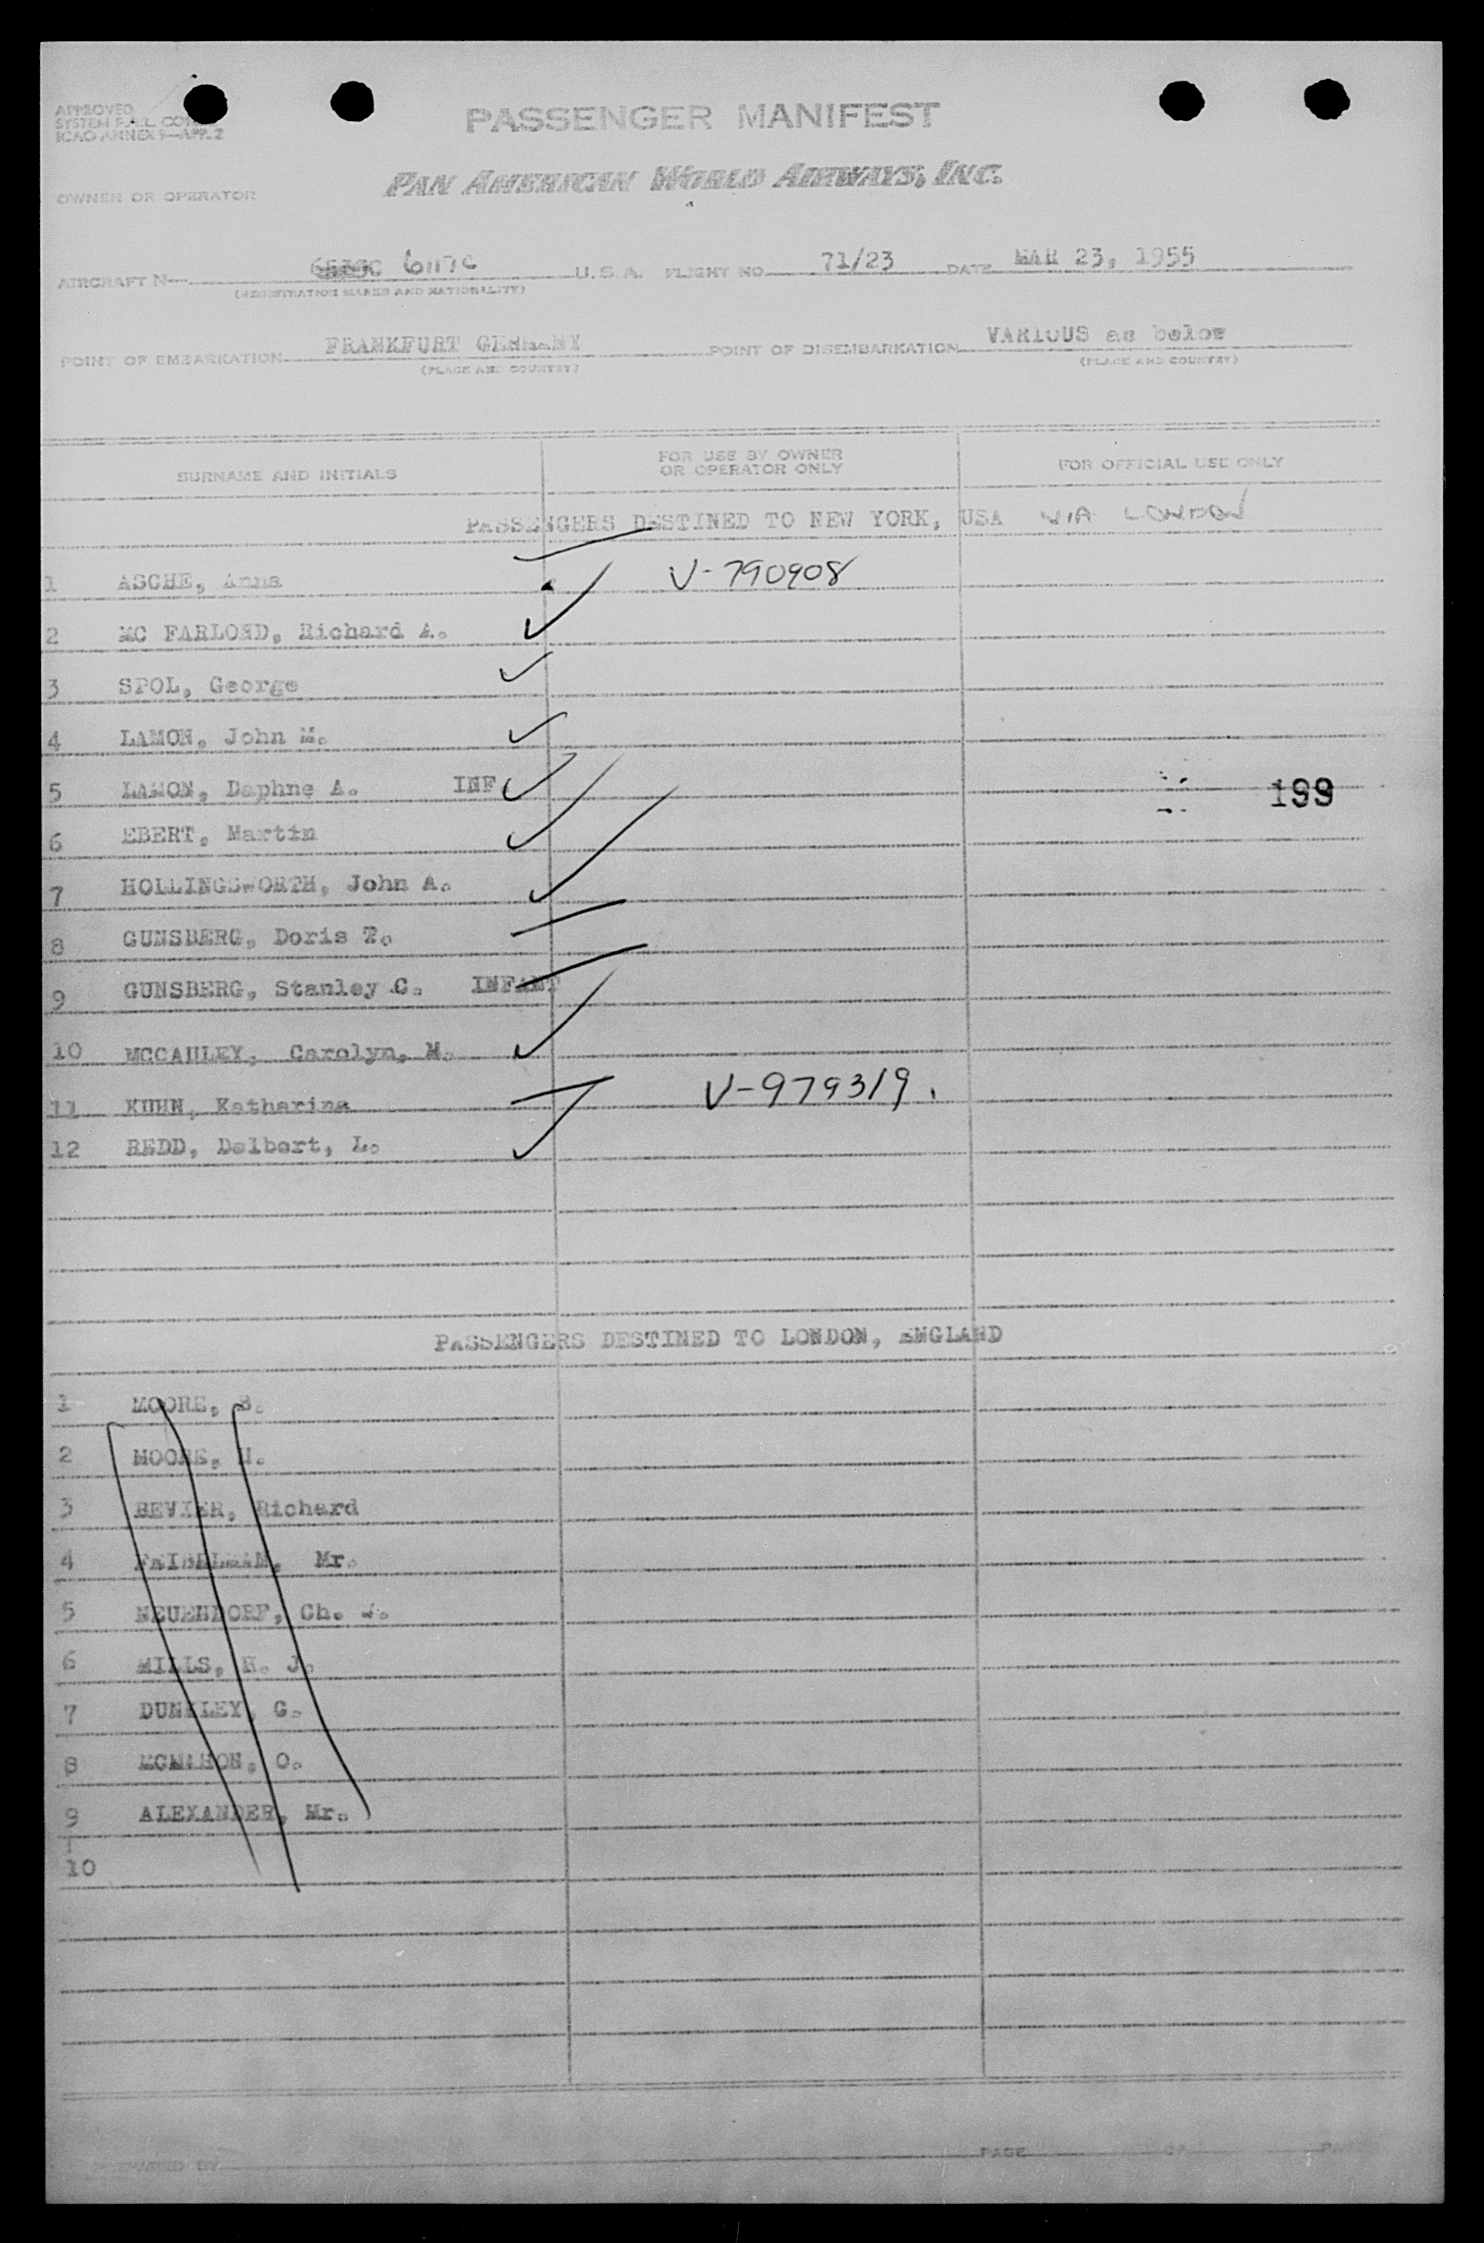 APPROVED
SYSTEM
ICAO ANNEX 9—APP. 2
PASSENGER MANIFEST
OWNER OR OPERATOR
PAN AMERICAN WORLD AIRWAYS, INC.
AIRCRAFT N— U.S.A. FLIGHT NO. 71/23 DATE MAR 23, 1955
(REGISTRATION MARKS AND NATIONALITY)
POINT OF EMBARKATION FRANKFURT GERMANY POINT OF DISEMBARKATION VARIOUS as below
(PLACE AND COUNTRY) (PLACE AND COUNTRY)
SURNAME AND INITIALS FOR USE BY OWNER OR OPERATOR ONLY FOR OFFICIAL USE ONLY
PASSENGERS DESTINED TO NEW YORK, USA VIA LONDON
1 ASCHE, Anna V-790908
2 MC FARLOND, Richard A.
3 SPOL, George
4 LAMON, John M.
5 LAMON, Daphne A. INF 199
6 EBERT, Martin
7 HOLLINGSWORTH, John A.
8 GUNSBERG, Doris T.
9 GUNSBERG, Stanley C. INFANT
10 MCCAULEY, Carolyn, M.
11 KUHN, Katharina V-979319.
12 REDD, Delbert, L.
PASSENGERS DESTINED TO LONDON, ENGLAND
1 MOORE, B.
2 MOORE,
3 BEVIER, Richard
4 Mr.
5 NEUENDORF, Ch.
6 MILLS, H. J.
7 DUNKLEY, G.
8 MCMAHON, O.
9 ALEXANDER, Mr.
10
PREPARED BY PAGE OF